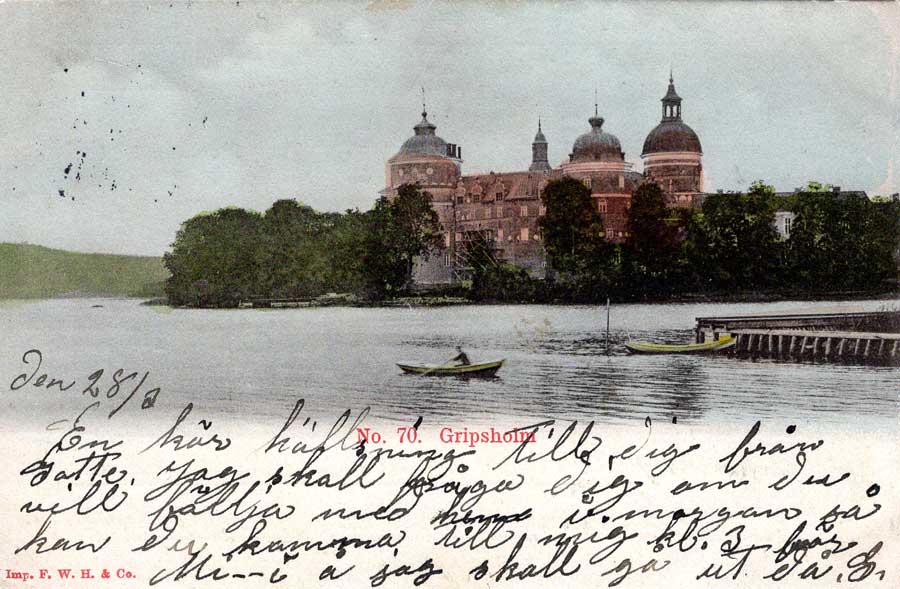 den 28/3
No. 70. Gripsholm
En kär hälsning Till dig från
Gotte. Jag skall fråga dig om du
vill följa med i morgon så
kan du komma till mig kl. 3 för
Mi--i å jag skall gå ut då. E.
Imp. F. W. H. & Co.